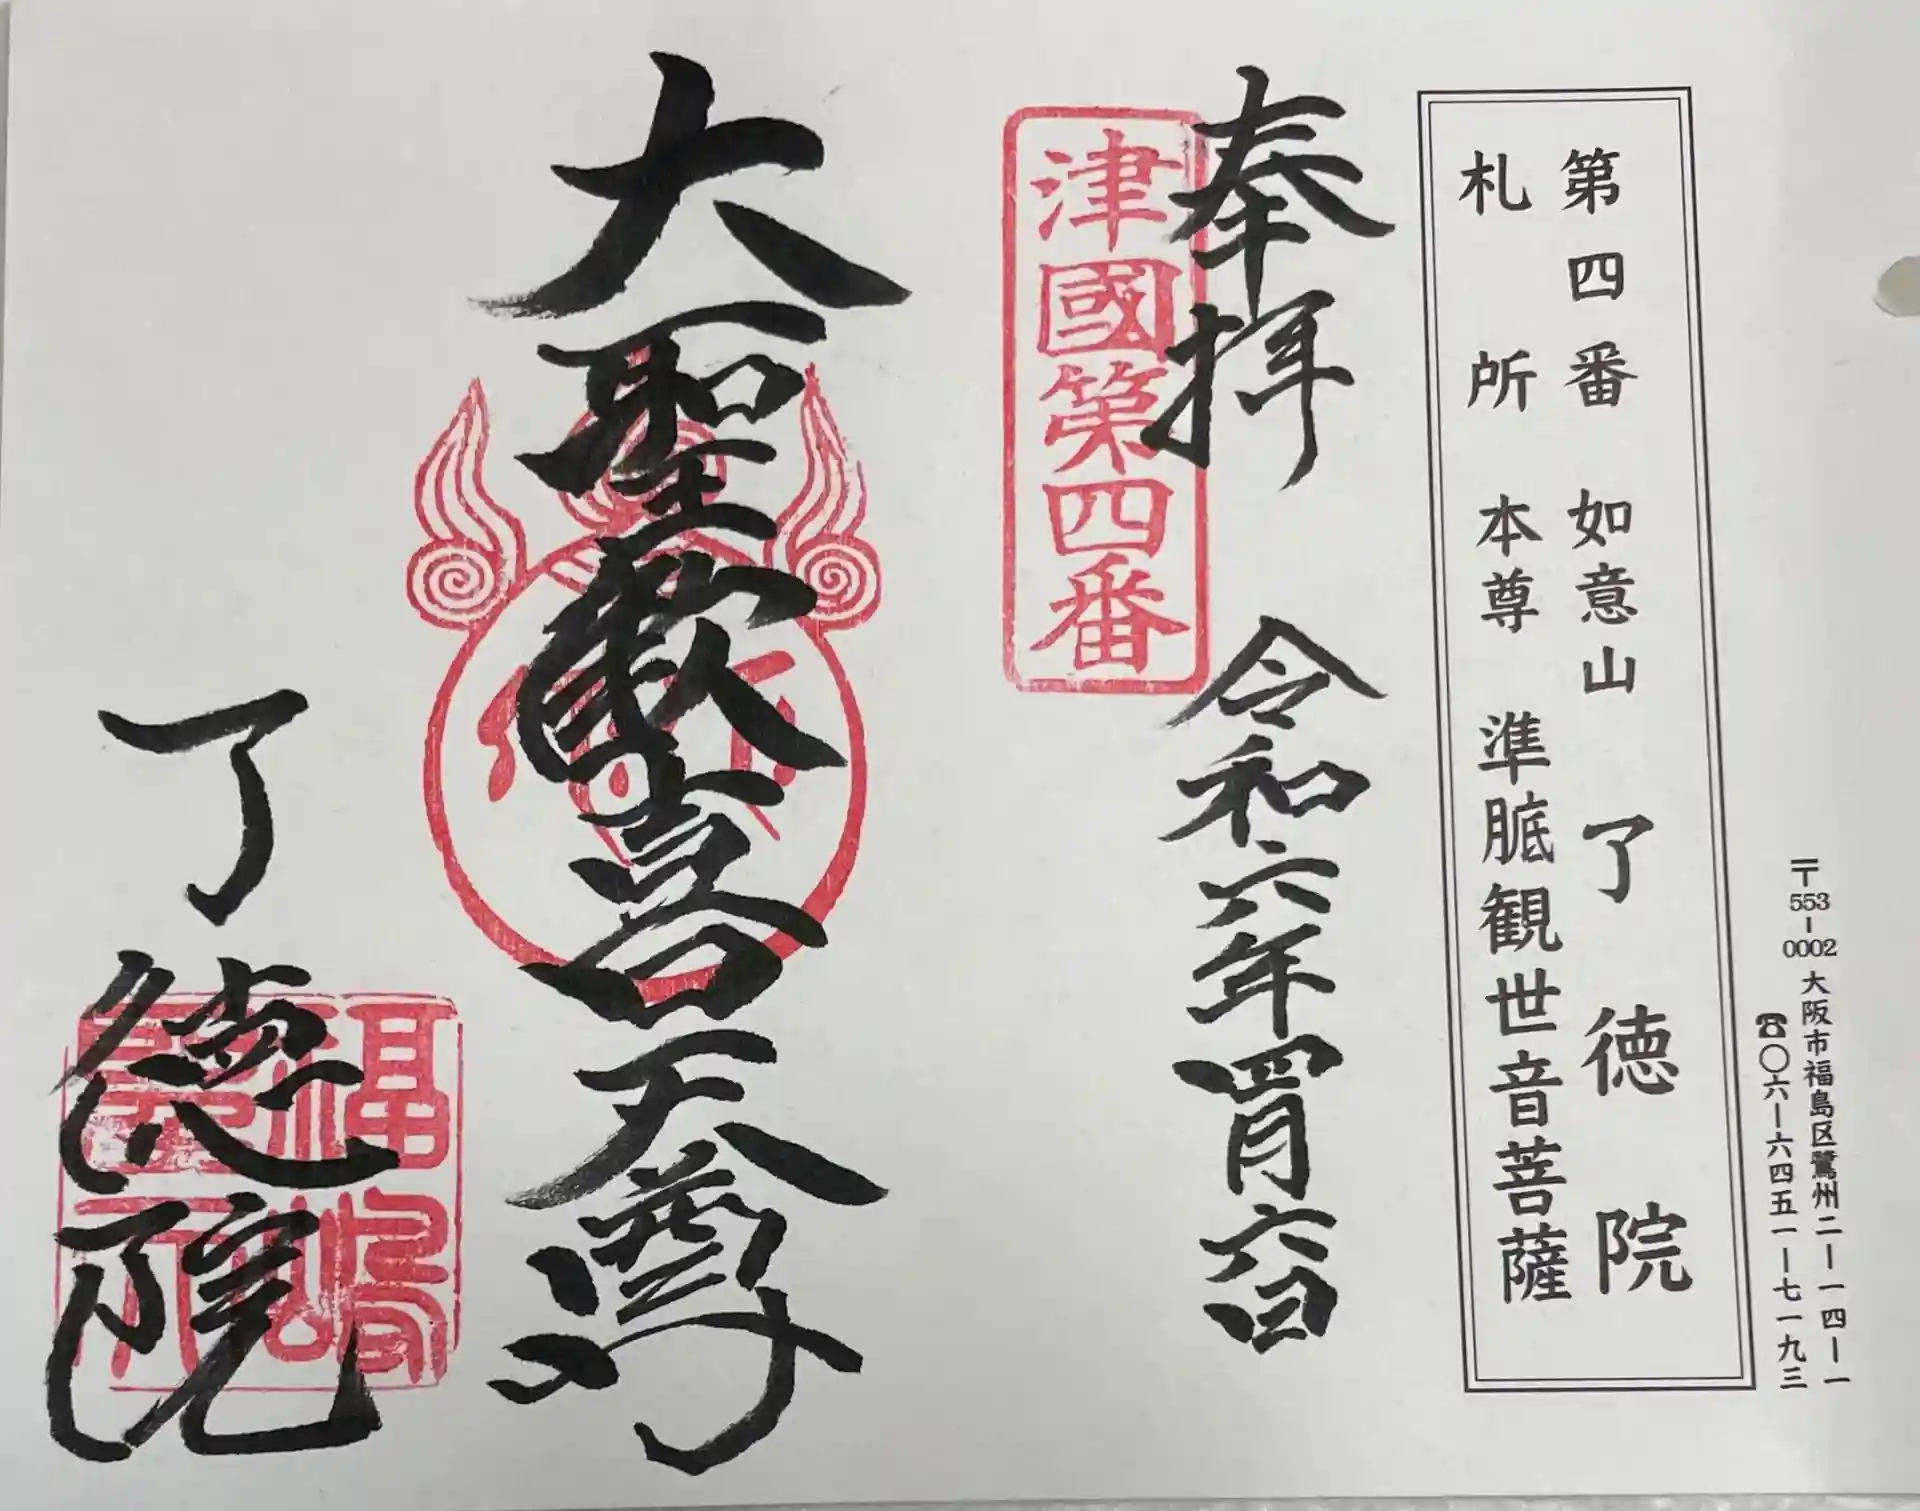 〒553-0002 大阪市福島区鷺州二ー一四ー一
☎〇六ー六四五一ー七一九三
第四番 如意山 了徳院
札所 本尊 準胝観世音菩薩
奉拝 令和六年四月六日
津國第四番
大聖歓喜天尊
了徳院